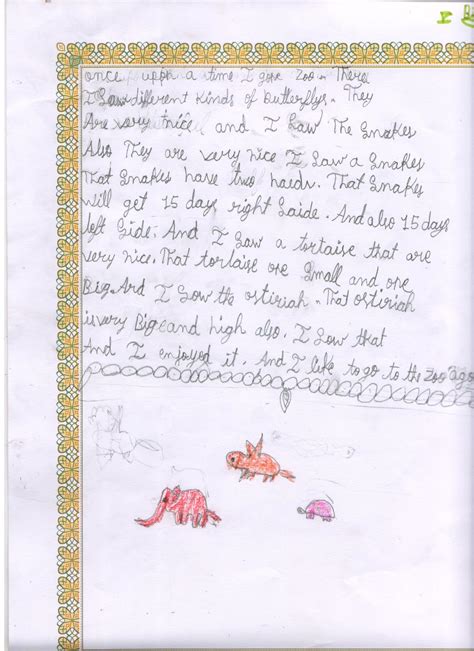 I
once upon a time I gone zoo. There
I Saw different kinds of butterflys. They
Are very nice and I Saw The Snakes
Also They are very nice I Saw a Snakes
That Snakes have two haeds. That Snakes
will get 15 days right Saide. And also 15 days
left Side. And I Saw a tortaise that are
very nice. That tortaise one Small and one
Big. And I Saw the ostiriah. That ostiriah
is very Big and high also. I Saw that
And I enjoyed it. And I like to go to the zoo ago